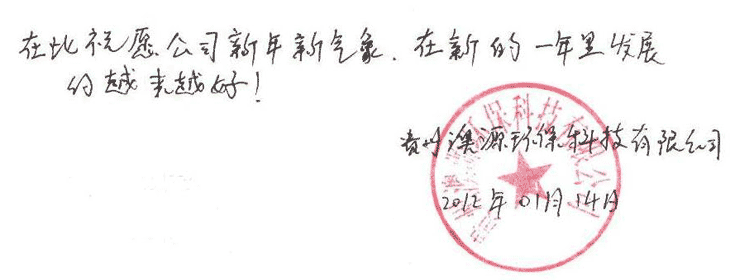 在此祝愿公司新年新气象.在新的一年里发展
的越来越好!
贵州澳源环保科技有限公司
2012年01月14日
环保科技有限公司